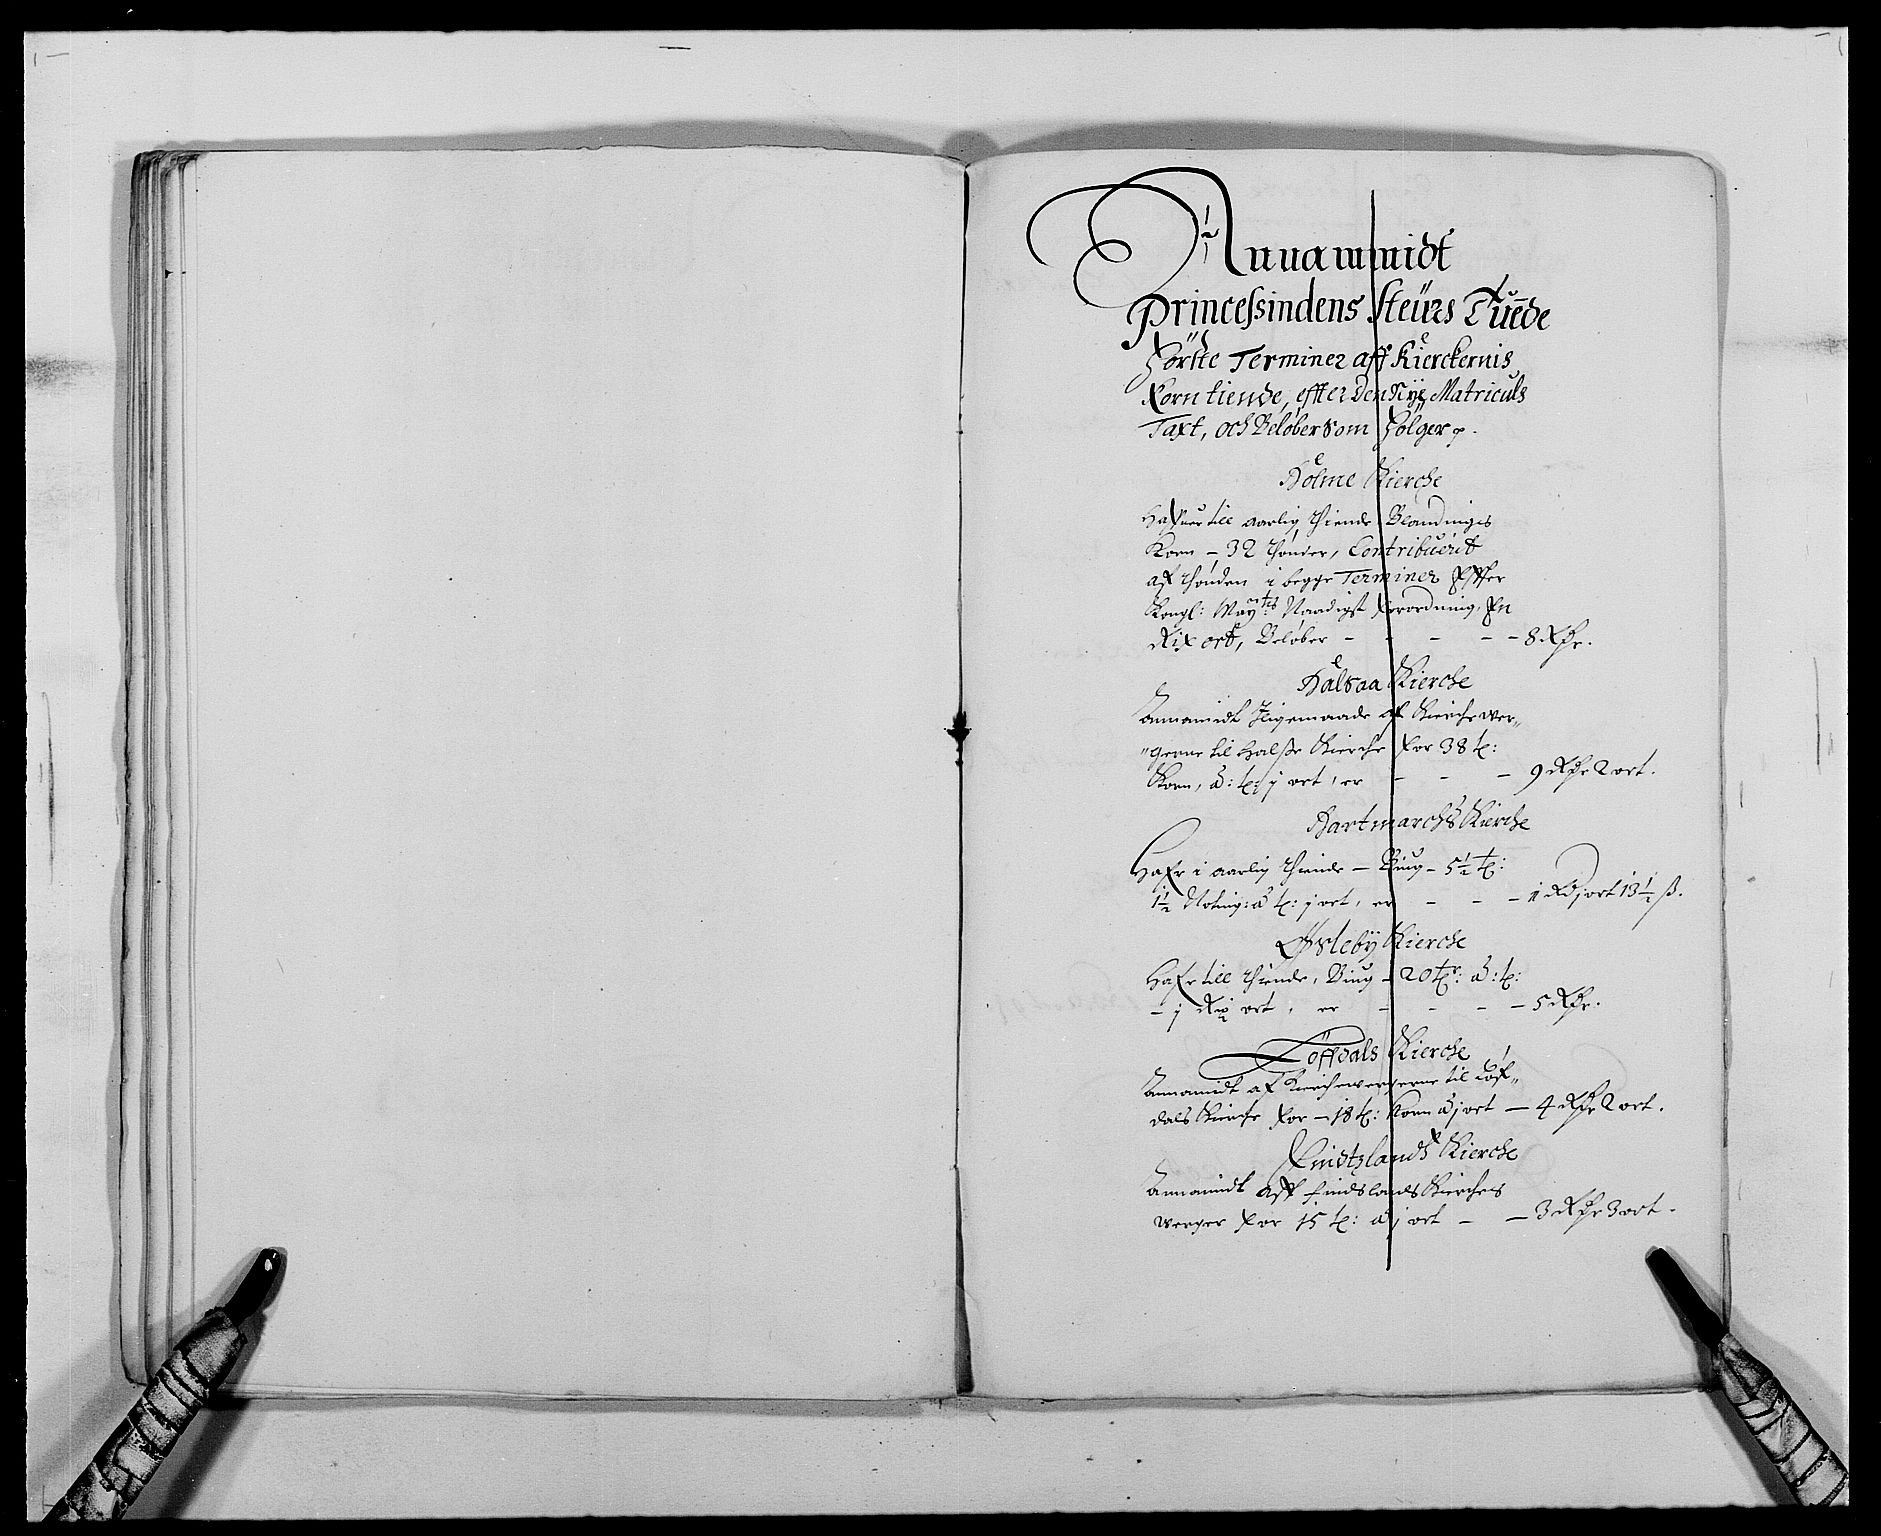 Annammidt
Princessindens Steürs Tuende
Förste Terminer aff Kierckernis
Korn tiende, effter den Nye Matriculs
Taxt, och Beløber som Fölger
Holme Kierche
Hafuer till aarlig thiende Blandingis
Korn – 32 thønder, Contribuerit
af thønden i begge Terminer Effter
Kongl: May:tts Naadigst forordning, En
Rix ort, Beløber – – – – – 8 Rdr.
Halsaa Kierche
Annamidt Ligemaade af Kierchewer„
„gerne til Halsse Kierche for 38 t:
Korn, à: t: j ort, er – – – 9 Rdr 2 ort.
Hartmarchs Kierche
Hafr i aarlig thiende – Biug – 5½ t:
1½ Setting: à t: j ort, er – – – 1 Rd j ort 13½ ß.
Øfsleby Kierche
Hafr till thiende, Biug – 20 tr: à: t:
– j Rix ort, er – – – – 5 Rdr.
Löffdals Kierche
Annamidt af Kierchewergerne til Løf„
dals Kierche for – 18 t: Korn à j ort – 4 Rdr 2 ort.
Findtzlandts Kierche
Annamidt aff Findslands Kierches
werger for 15 t: à j ort – – 3 Rdr 3 ort.